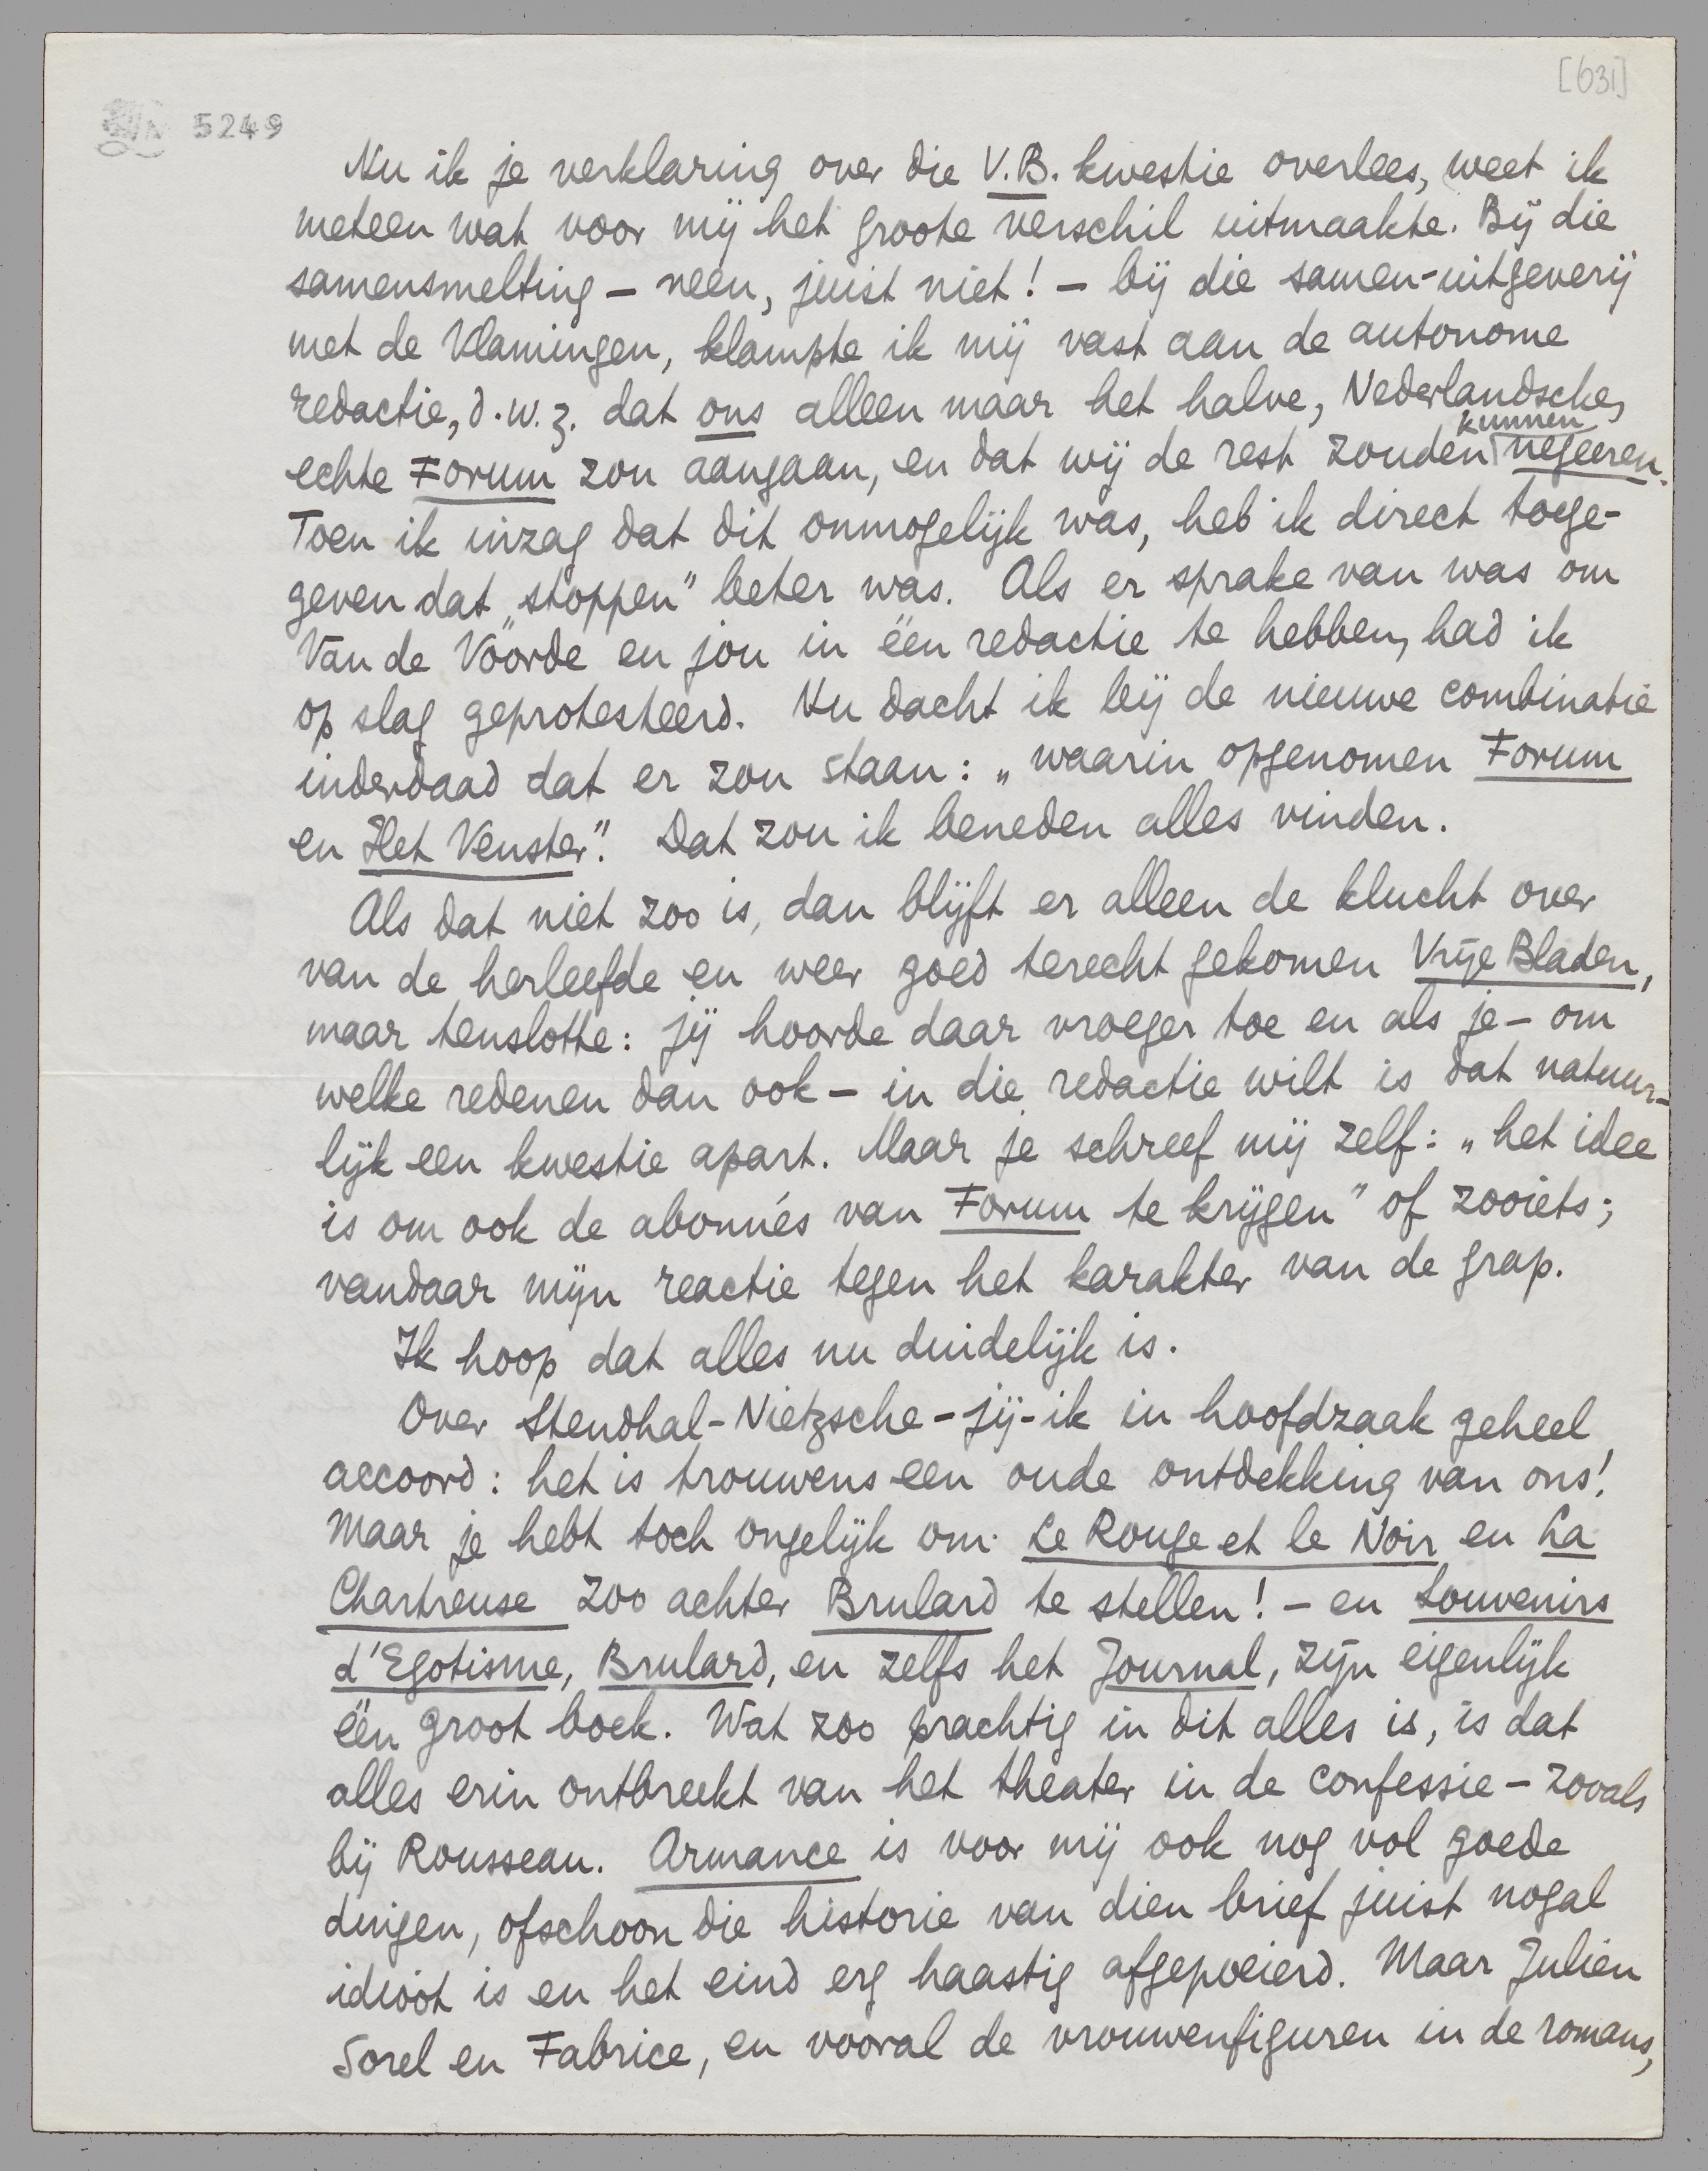 [631]
5249
Nu ik je verklaring over die V.B. kwestie overlees, weet ik
meteen wat voor mij het groote verschil uitmaakte. Bij die
samensmelting – neen, juist niet! – bij die samen-uitgeverij
met de Vlamingen, klampte ik mij vast aan de autonome
redactie, d.w.z. dat ons alleen maar het halve, Nederlandsche,
kunnen
echte Forum zou aangaan, en dat wij de rest zouden negeeren.
Toen ik inzag dat dit onmogelijk was, heb ik direct toege-
geven dat „stoppen" beter was. Als er sprake van was om
Van de Voorde en jou in één redactie te hebben, had ik
op slag geprotesteerd. Nu dacht ik bij de nieuwe combinatie
inderdaad dat er zou staan: „waarin opgenomen Forum
en Het Venster". Dat zou ik beneden alles vinden.
Als dat niet zoo is, dan blijft er alleen de klucht over
van de herleefde en weer goed terecht gekomen Vrije Bladen,
maar tenslotte: jij hoorde daar vroeger toe en als je – om
welke redenen dan ook – in die redactie wilt is dat natuur-
lijk een kwestie apart. Maar je schreef mij zelf: „het idee
is om ook de abonné's van Forum te krijgen" of zooiets;
vandaar mijn reactie tegen het karakter van de grap.
Ik hoop dat alles nu duidelijk is.
Over Stendhal-Nietzsche-jij-ik in hoofdzaak geheel
accoord: het is trouwens een oude ontdekking van ons!
Maar je hebt toch ongelijk om Le Rouge et le Noir en La
Chartreuse zoo achter Brulard te stellen! – en Souvenirs
d'Egotisme, Brulard, en zelfs het Journal, zijn eigenlijk
één groot boek. Wat zoo prachtig in dit alles is, is dat
alles erin ontbreekt van het theater in de confessie – zooals
bij Rousseau. Armance is voor mij ook nog vol goede
dingen, ofschoon die historie van dien brief juist nogal
idioot is en het eind erg haastig afgepoeierd. Maar Julien
Sorel en Fabrice, en vooral de vrouwenfiguren in de romans,